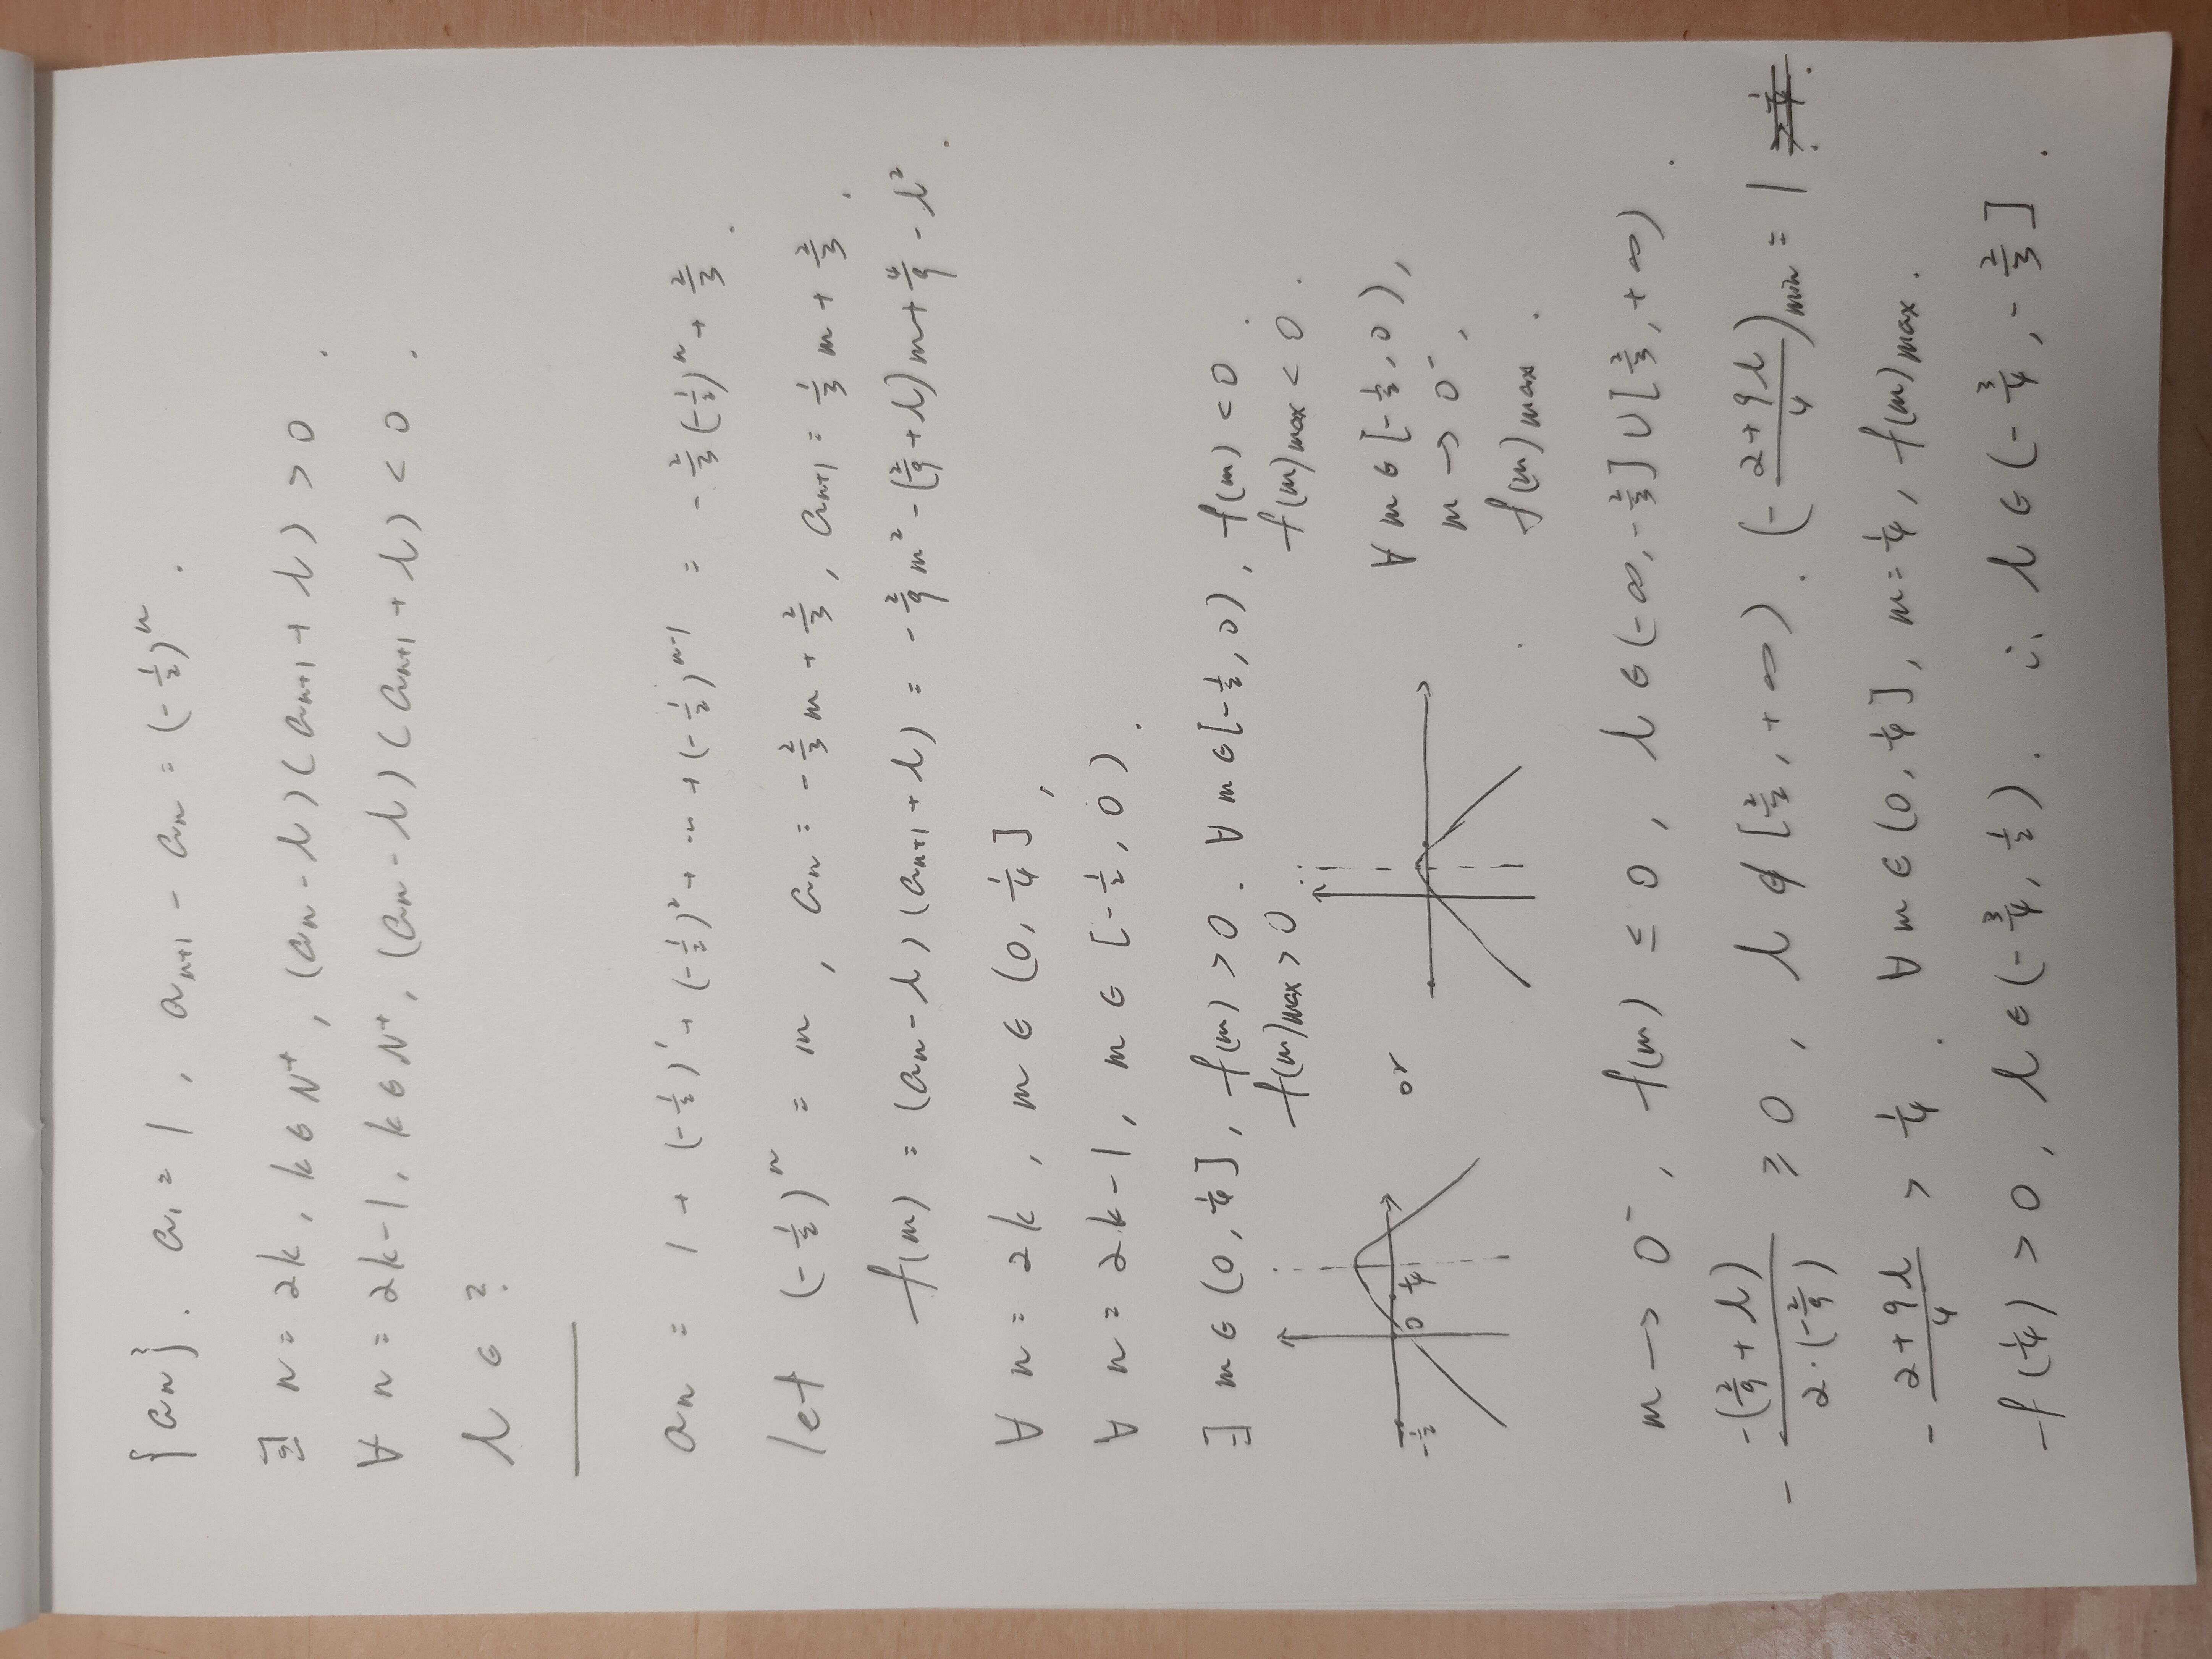 {aₙ}. a₁ = 1, aₙ₊₁ - aₙ = (-1/2)ⁿ.
∃ n = 2k, k ∈ N⁺, (aₙ - λ)(aₙ₊₁ + λ) > 0.
∀ n = 2k-1, k ∈ N⁺, (aₙ - λ)(aₙ₊₁ + λ) < 0.
λ ∈ ?
aₙ = 1 + (-1/2)¹ + (-1/2)² + ... + (-1/2)ⁿ⁻¹ = -2/3(-1/2)ⁿ + 2/3.
let (-1/2)ⁿ = m, aₙ = -2/3 m + 2/3, aₙ₊₁ = 1/3 m + 2/3.
f(m) = (aₙ - λ)(aₙ₊₁ + λ) = -2/9 m² - (2/9 + λ)m + 4/9 - λ².
∀ n = 2k, m ∈ (0, 1/4],
∀ n = 2k-1, m ∈ [-1/2, 0).
∃ m ∈ (0, 1/4], f(m) > 0. ∀ m ∈ [-1/2, 0), f(m) < 0.
f(m)max > 0. f(m)max < 0.
-1/2 0 1/4 or
∀ m ∈ [-1/2, 0),
m → 0⁻,
f(m)max.
m → 0⁻, f(m) ≤ 0, λ ∈ (-∞, -2/3] ∪ [2/3, +∞).
- -(2/9 + λ)/(2·(-2/9)) ≥ 0, λ ∉ [2/3, +∞). (-(2+9λ)/4)min = 1
-(2+9λ)/4 > 1/4. ∀ m ∈ (0, 1/4], m = 1/4, f(m)max.
f(1/4) > 0, λ ∈ (-3/4, 1/2). ∴ λ ∈ (-3/4, -2/3].